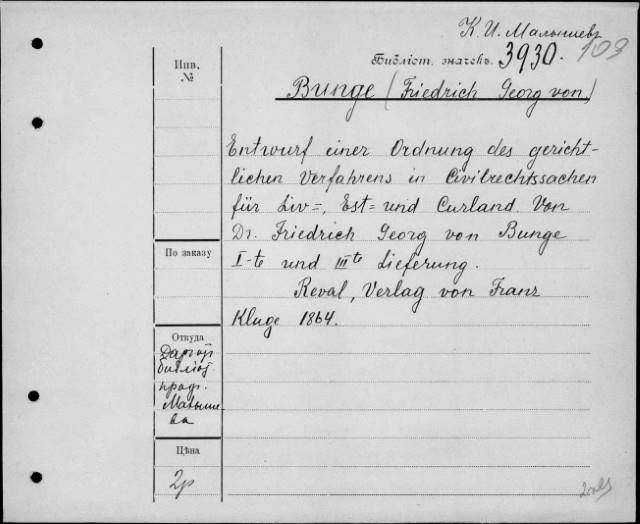 К. И. Малышевъ
Библіот. значекъ. 3930. 103
Инв.
№
Bunge (Friedrich Georg von)
Entwurf einer Ordnung des gericht-
lichen Verfahrens in Civilrechtssachen
für Liv=, Est= und Curland. Von
Dr. Friedrich Georg von Bunge
I-te und III te Lieferung.
Reval, Verlag von Franz
Kluge 1864.
По заказу
Откуда
проф.
Малыше-
ва
Цѣна
2р